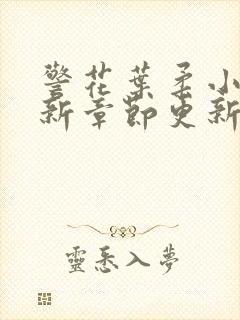 警花葉柔小
新章節更新
靈悉入夢